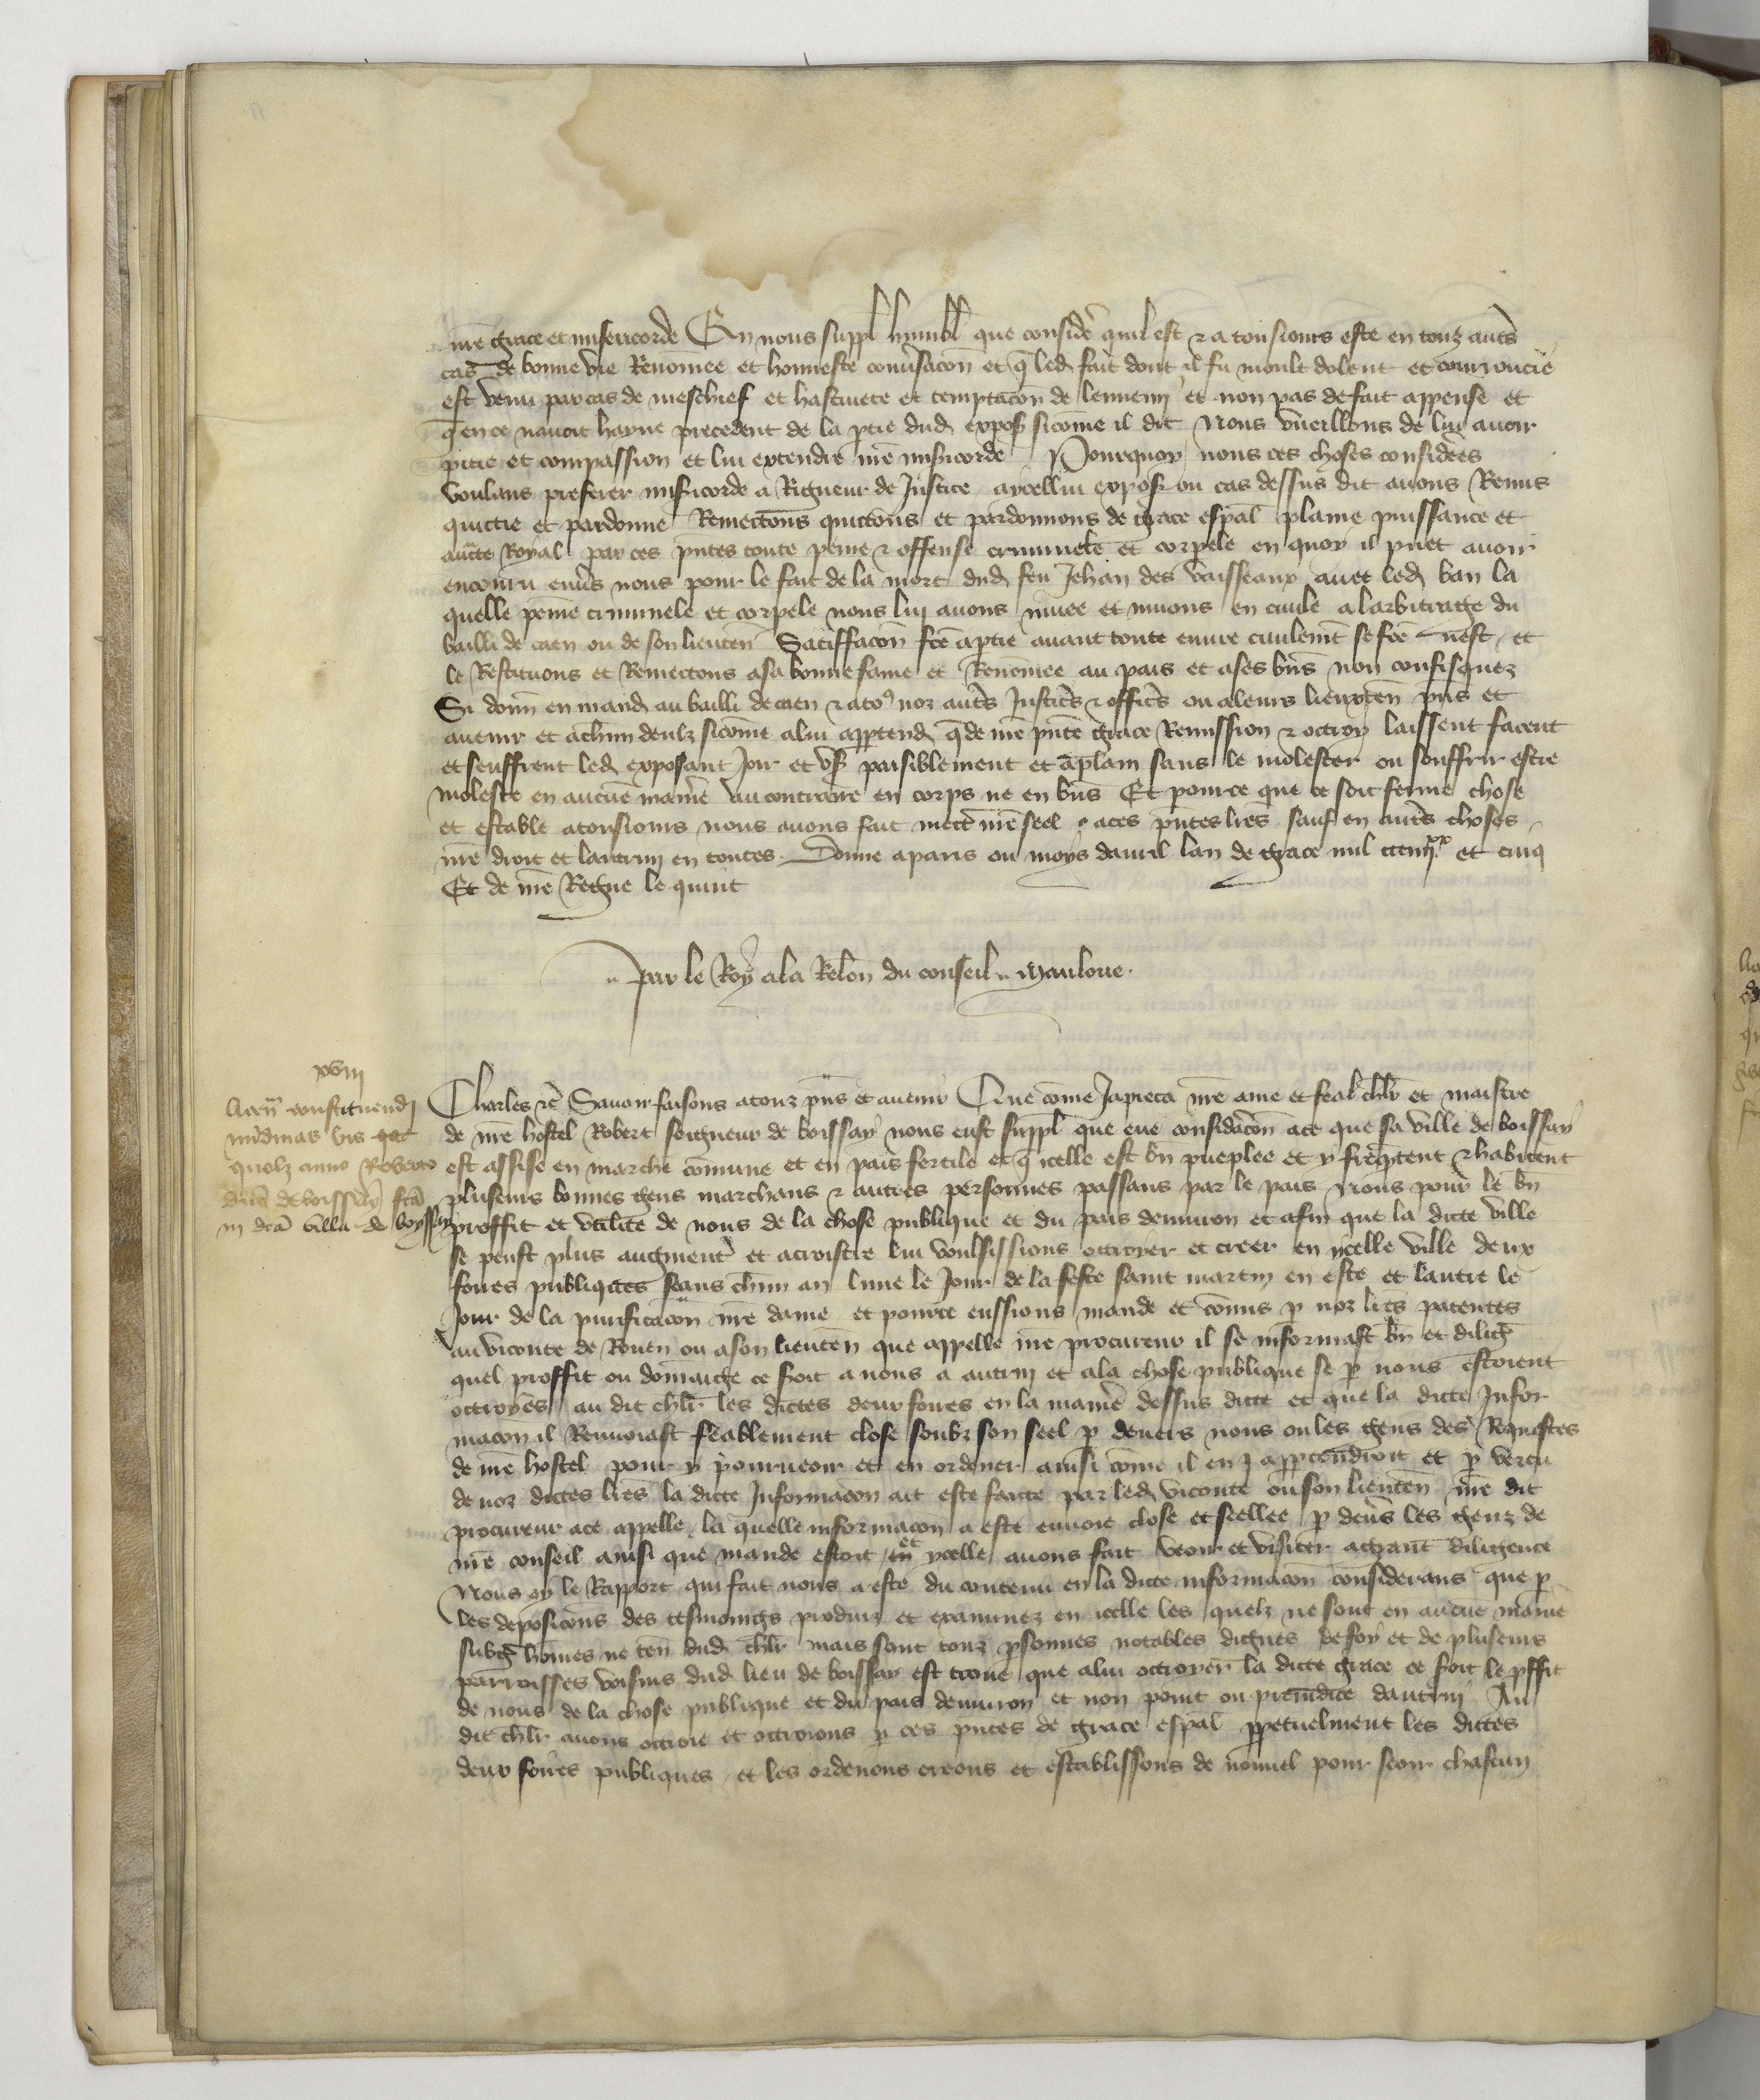 nr̄e grace et misericorde En nous suppl̄ humbl̄ que considēr quil est ⁊ a tousiours este en touz autr̄s
cas de bonne vie Renōmee et honneste conu̾sacōn et q̄ led̄ fait dont il fu moult dolent et courroucie
est venu par cas de meschief et hastiuete et temptacōn de lennemj et non pas de fait appense et
q̄ en ce nauoit hayne precedent de la p̱tie dud̄ expoš sicōme il dit Nous vueillons de lui auoir
pitie et compassion et lui extendre nr̄e mis̾icorde Pourquoy nous ces choses considēes
voulans preferer mis̾icorde a Rigueur de Justice aycellui expoš ou cas dessus dit auons Remis
quictie et pardonne Remectons quictons et pardonnons de grace esp̄al plaine puissance et
auct̄e Royal par ces p̄ntes toute peine ⁊ offense criminele et corp̱ele en quoy il puet auoir
encouru enu̾s nous pour le fait de la mort dud̄ feu Jehan des vaisseaux auec led̄ ban la
quelle peine criminele et corp̱ele nous lui auons muee et muons en ciuile a larbitrage du
bailli de caen ou de son lieuten̄ Satiffacōn fc̄e a p̱tie auant toute euure ciuilem̄t se fc̄e nest et
le Restituons et Remectons a sa bonne fame et Renōmee au pais et a ses bn̄s non confisquez
Si donn̄ en mand̄ au bailli de caen ⁊ a toꝰ noz autr̄s Justic̾s ⁊ offic̾s ou a leurs lieuxten̄ p̄ns et
auenir et a ch̄un deulz sicōme a lui app̱tend̄ q̄ de nr̄e p̄nte grace Remission ⁊ octroy laissent facent
et seuffrent led̄ exposant Jouir et vs̾ paisiblement et aplain sans le molester ou souffrir estre
moleste en aucūe manie̾ au contraire en corps ne en bn̄s Et pour ce que ce soit ferme chose
et estable a tousiours nous auons fait mectr̄ nr̄e seel a ces p̄ntes lr̄es sauf en autr̄s choses
nr̄e droit et lautruy en toutes Donne a paris ou moys dauril lan de grace mil ccc iiijxx et cinq
Et de nr̄e Regne le quint
Par le Roy a la Relōn du conseil Mauloue
xviij
Charles ⁊c̄ Sauoir faisons a touz p̄ns et auenir Que cōme Japieca nr̄e ame et feal ch̄lr et maistre
de nr̄e hostel Robert seigneur de boissay nous eust suppl̄ que eue considac̄on a ce que sa ville de boissay
est assise en marche cōmune et en pais fertile et q̄ icelle est bn̄ pueplee et y freq̄ntent ⁊ habitent
pluseurs bonnes gens marchans ⁊ autres personnes passans par le pais Nous pour le bn̄
proffit et vtilite de nous de la chose publique et du pais denuiron et afin que la dicte ville
se peust plus augment̾ et acroistre lui voulsissions octroyer et creer en ycelle ville deux
foires publiques seans ch̄un an lune le Jour de la feste saint martin en este et lautre le
Jour de la purificacōn nr̄e dame et pour ce eussions mande et cōmis p̱ noz lr̄es patentes
au viconte de Rouen ou a son lieuten̄ que appelle nr̄e procureur il se informast bn̄ et dilig̾
quel proffit ou dōmaige ce s̾oit a nous a autruj et a la chose publique se p̱ nous estoient
octroyes au dit ch̄lr les dictes deux foires en la manie̾ dessus dicte et que la dicte Infor
macōn il Renuoiast feablement close soubz son seel p̱ deuers nous ou les gens des Requestes
de nr̄e hostel pour y pourueoir et en ordener ainsi cōme il en app̱tendroit et p̱ vertu
de noz dictes lr̄es la dicte Informacōn ait este faicte par led̄ viconte ou son lieuten̄ nr̄e dit
procureur a ce appelle la quelle informacōn a este enuoie close et seellee p̱ deuers les genz de
nr̄e conseil ainsi que mande estoit et ycelle auons fait veoir et visiter a grant diligence
Nous oy le Rapport qui fait nous a este du contenu en la dicte informacōn considerans que p̱
les deposicōns des tesmoings produiz et examinez en icelle les quelz ne sont en aucūe manie̾
subg̾ hōmes ne ten̄ dud̄ ch̄lr mais sont touz p̱sonnes notables dignes de foy et de pluseurs
parroisses voisins dud̄ lieu de boissay est trouue que a lui octroyer la dicte grace ce s̾oit le p̱ffit
de nous de la chose publique et du pais denuiron et non point ou preiudice dautruj Au
dit ch̄lr auons octroie et octroions p̱ ces p̄ntes de grace esp̄al p̱petuelment les dictes
deux foires publiques et les ordenons creons et establissons de nouuel pour seoir chascun
constituendi
nūdinas bis
quolz anno Roberto
dn̄o de boissay fc̄a
in dc̄a villa de boyssay